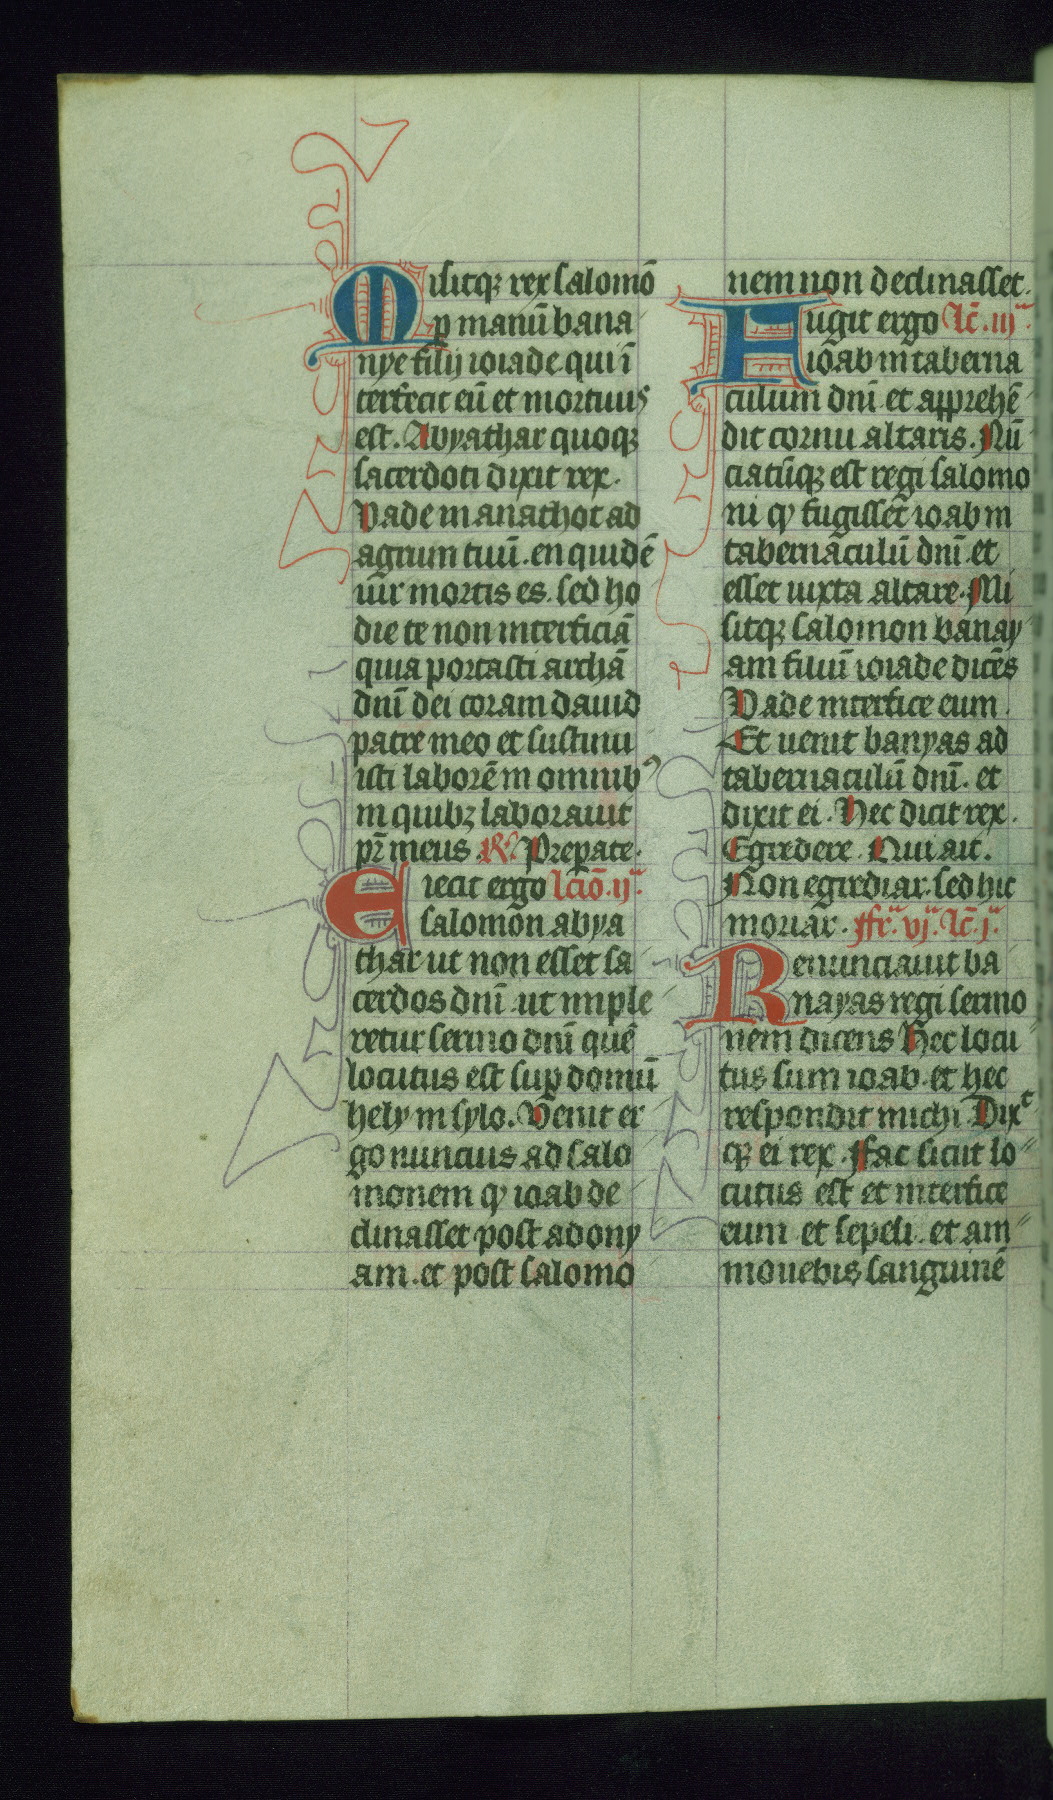 Misitqꝫ rex salomō
ꝑ manū bana
nye filij ioiade qui ī
terfecit eū et mortuus
est. Abyathar quoqꝫ
sacerdoti dixit rex.
Vade in anathot ad
agrum tuū. en quidē
uir mortis es. sed ho
die te non interficiā
quia portasti archā
dnī dei coram dauid
patre meo et sustinu
isti laborē in omnibꝰ
in quibꝫ laborauit
pr̄ meus. R. Prepate.
Eiecit ergo lctiō. ij.
salomon abya
thar ut non esset sa
cerdos dnī. ut imple
retur sermo dnī quē
locutus est suꝑ domū
hely in sylo. Uenit er
go nuncius ad salo
monem ꝙ ioab de
clinasset post adony
am. et post salomo
nem non declinasset.
Fugit ergo lc̄. iij.
ioab in taberna
culum dnī. et apprehē
dit cornu altaris. Nū
ciatūqꝫ est regi salomo
ni ꝙ fugisset ioab in
tabernaculū dnī. et
esset iuxta altare. Mi
sitqꝫ salomon banay
am filiū ioiade dicēs
Vade interfice eum.
Et uenit banyas ad
tabernaculū dnī. et
dixit ei. Hec dicit rex.
Egredere. Qui ait.
Non egrediar. sed hic
moriar. fr. vj. lc̄. j.
Renunciauit ba
nayas regi sermo
nem dicens Hec locu
tus sum ioab. et hec
respondit michi. Dixᵗ
qꝫ ei rex. Fac sicut lo
cutus est et interfice
eum et sepeli. et am
mouebis sanguinē